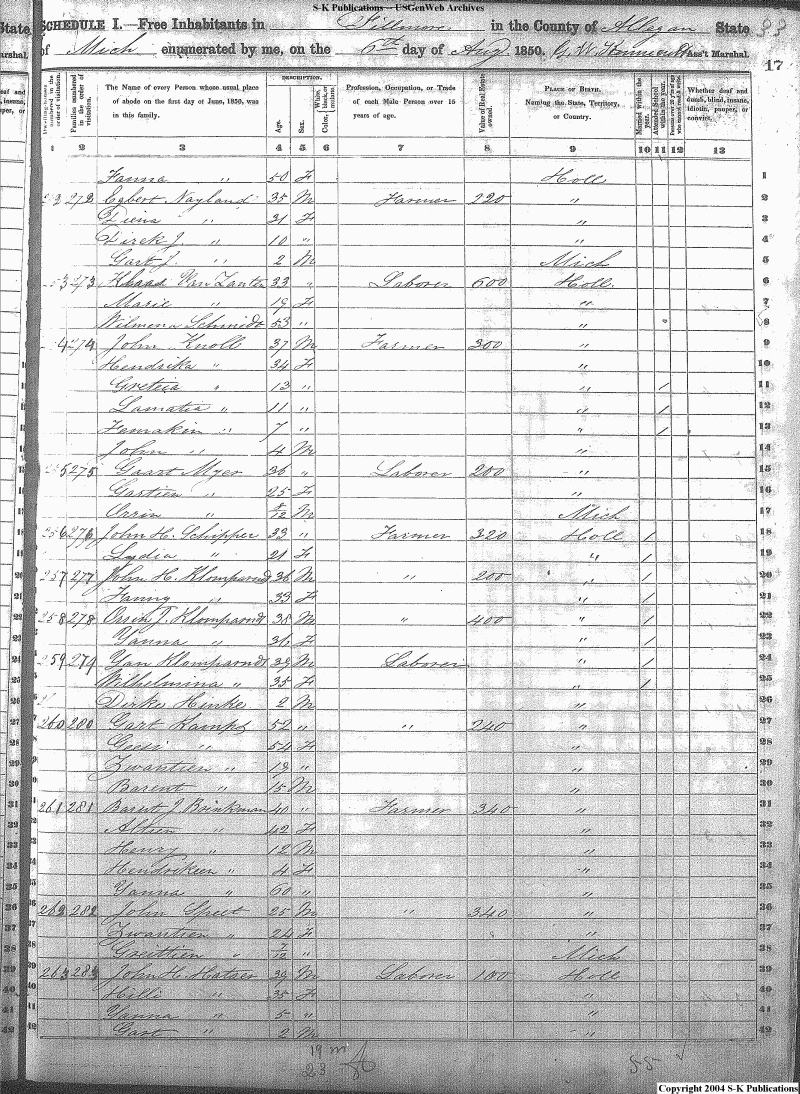 S-K Publications — USGenWeb Archives
State,
Marshal.
SCHEDULE I.—Free Inhabitants in Fillmore in the County of Allegan State 33
of Mich enumerated by me, on the 6th day of Aug 1850. G. W. Ass't Marshal.
17
Dwelling-houses numbered in the order of visitation.
Families numbered in the order of visitation.
The Name of every Person whose usual place of abode on the first day of June, 1850, was in this family.
DESCRIPTION.
Age.
Sex.
Color, White, black, or mulatto.
Profession, Occupation, or Trade of each Male Person over 15 years of age.
Value of Real Estate owned.
PLACE OF BIRTH. Naming the State, Territory, or Country.
Married within the year.
Attended School within the year.
Whether deaf and dumb, blind, insane, idiotic, pauper, or convict.
1 2 3 4 5 6 7 8 9 10 11 12 13
Fanna " 50 F Holl 1
272 Egbert Nayland 35 M Farmer 220 " 2
Diena " 31 F " 3
Direk J. " 10 " " 4
Gart J. " 2 M Mich 5
273 Klaas Van Zanten 33 " Laborer 600 Holl. 6
Marie " 19 F " 7
Wilmena Schmidt 53 " " 8
274 John Knoll 37 M Farmer 300 " 9
Hendrika " 34 F " 10
Gretica " 13 " " / 11
Lamatia " 11 " " / 12
" 7 " " / 13
John " 4 M " 14
275 Gaart Myer 36 " Laborer 200 " 15
Gastien " 25 F " 16
Orrin " /12 M Mich 17
256 276 John H. Schipper 33 " Farmer 320 Holl / 18
Lydia " 21 F " / 19
257 277 John H. Klomparndt 36 M " 200 " / 20
Fanny " 33 F " / 21
258 278 Orrin J. Klomparndt 38 M " 400 " / 22
Yanna " 36 F " / 23
259 279 Yan Klomparndt 39 M Laborer " / 24
Wilhelmina " 35 F " / 25
Dirke Hinke 2 M " 26
260 280 Gart Kamps 52 " " 240 " 27
Geesi " 54 F " 28
Zwantien " 19 " " 29
Barent " 15 M " 30
261 281 Baret J Brinkman 40 " Farmer 340 " 31
Altien " 42 F " 32
Henry " 12 M " 33
Hendrikien " 4 F " 34
Yanna " 60 " " 35
262 282 John Speet 25 M " 340 " 36
Zwantien " 24 F " 37
Greittien " 7/12 " Mich 38
263 283 John H. Hatser 39 M Laborer 100 Holl 39
Hilli " 35 F " 40
Yanna " 5 " " 41
Gart " 2 M " 42
19 m
23 f
Copyright 2004 S-K Publications